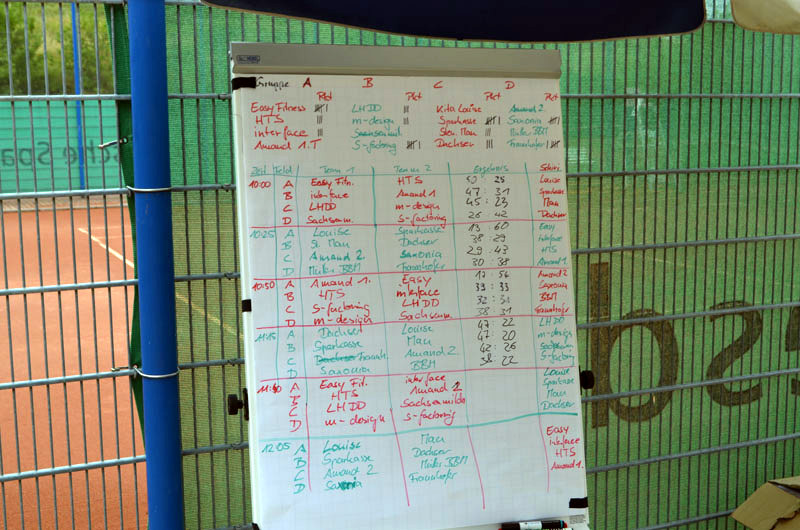 Gruppe A B C D
Plat Plat Plat Plat
Easy Fitness LHDD Kita Louise Amand 2.
HTS m-design Sparkasse Saxonia
interface Sachsenmilch Stev. Man Müller BBM
Amand 1. T S-factoring Dachser Fraunhofer
Zeit Feld Team 1 Team 2 Ergebnis Schiri
10:00 A Easy Fitn. HTS 25 Louise
B interface Amand 1 47 : 31 Sparkasse
C LHDD m-design 45 : 23 Man
D Sachsenm. S-factoring 26 : 42 Dachser
10:25 A Louise Sparkasse 13 : 60 Easy
B St. Man Dachser 38 : 29 interface
C Amand 2. Saxonia 29 : 43 HTS
D Müller BBM Fraunhofer 30 : 38 Amand 1.
10:50 A Amand 1. Easy 17 : 56 Amand 2
B HTS interface 33 : 33 Saxonia
C S-factoring LHDD 32 : BBM
D m-design Sachsenm 38 : 31 Fraunhofer
11:15 A Dachser Louise 47 : 22 LHDD
B Sparkasse Man 47 : 20 m-design
C Fraunh. Amand 2 42 : 26 Sachsenm
D Saxonia BBM 38 : 22 S-factoring
11:40 A Easy Fit. interface Louise
B HTS Amand 1 Sparkasse
C LHDD Sachsenmilch Man
D m-design S-factoring Dachser
12:05 A Louise Man Easy
B Sparkasse Dachser interface
C Amand 2 Müller BBM HTS
D Saxonia Fraunhofer Amand 1.
sche Spa